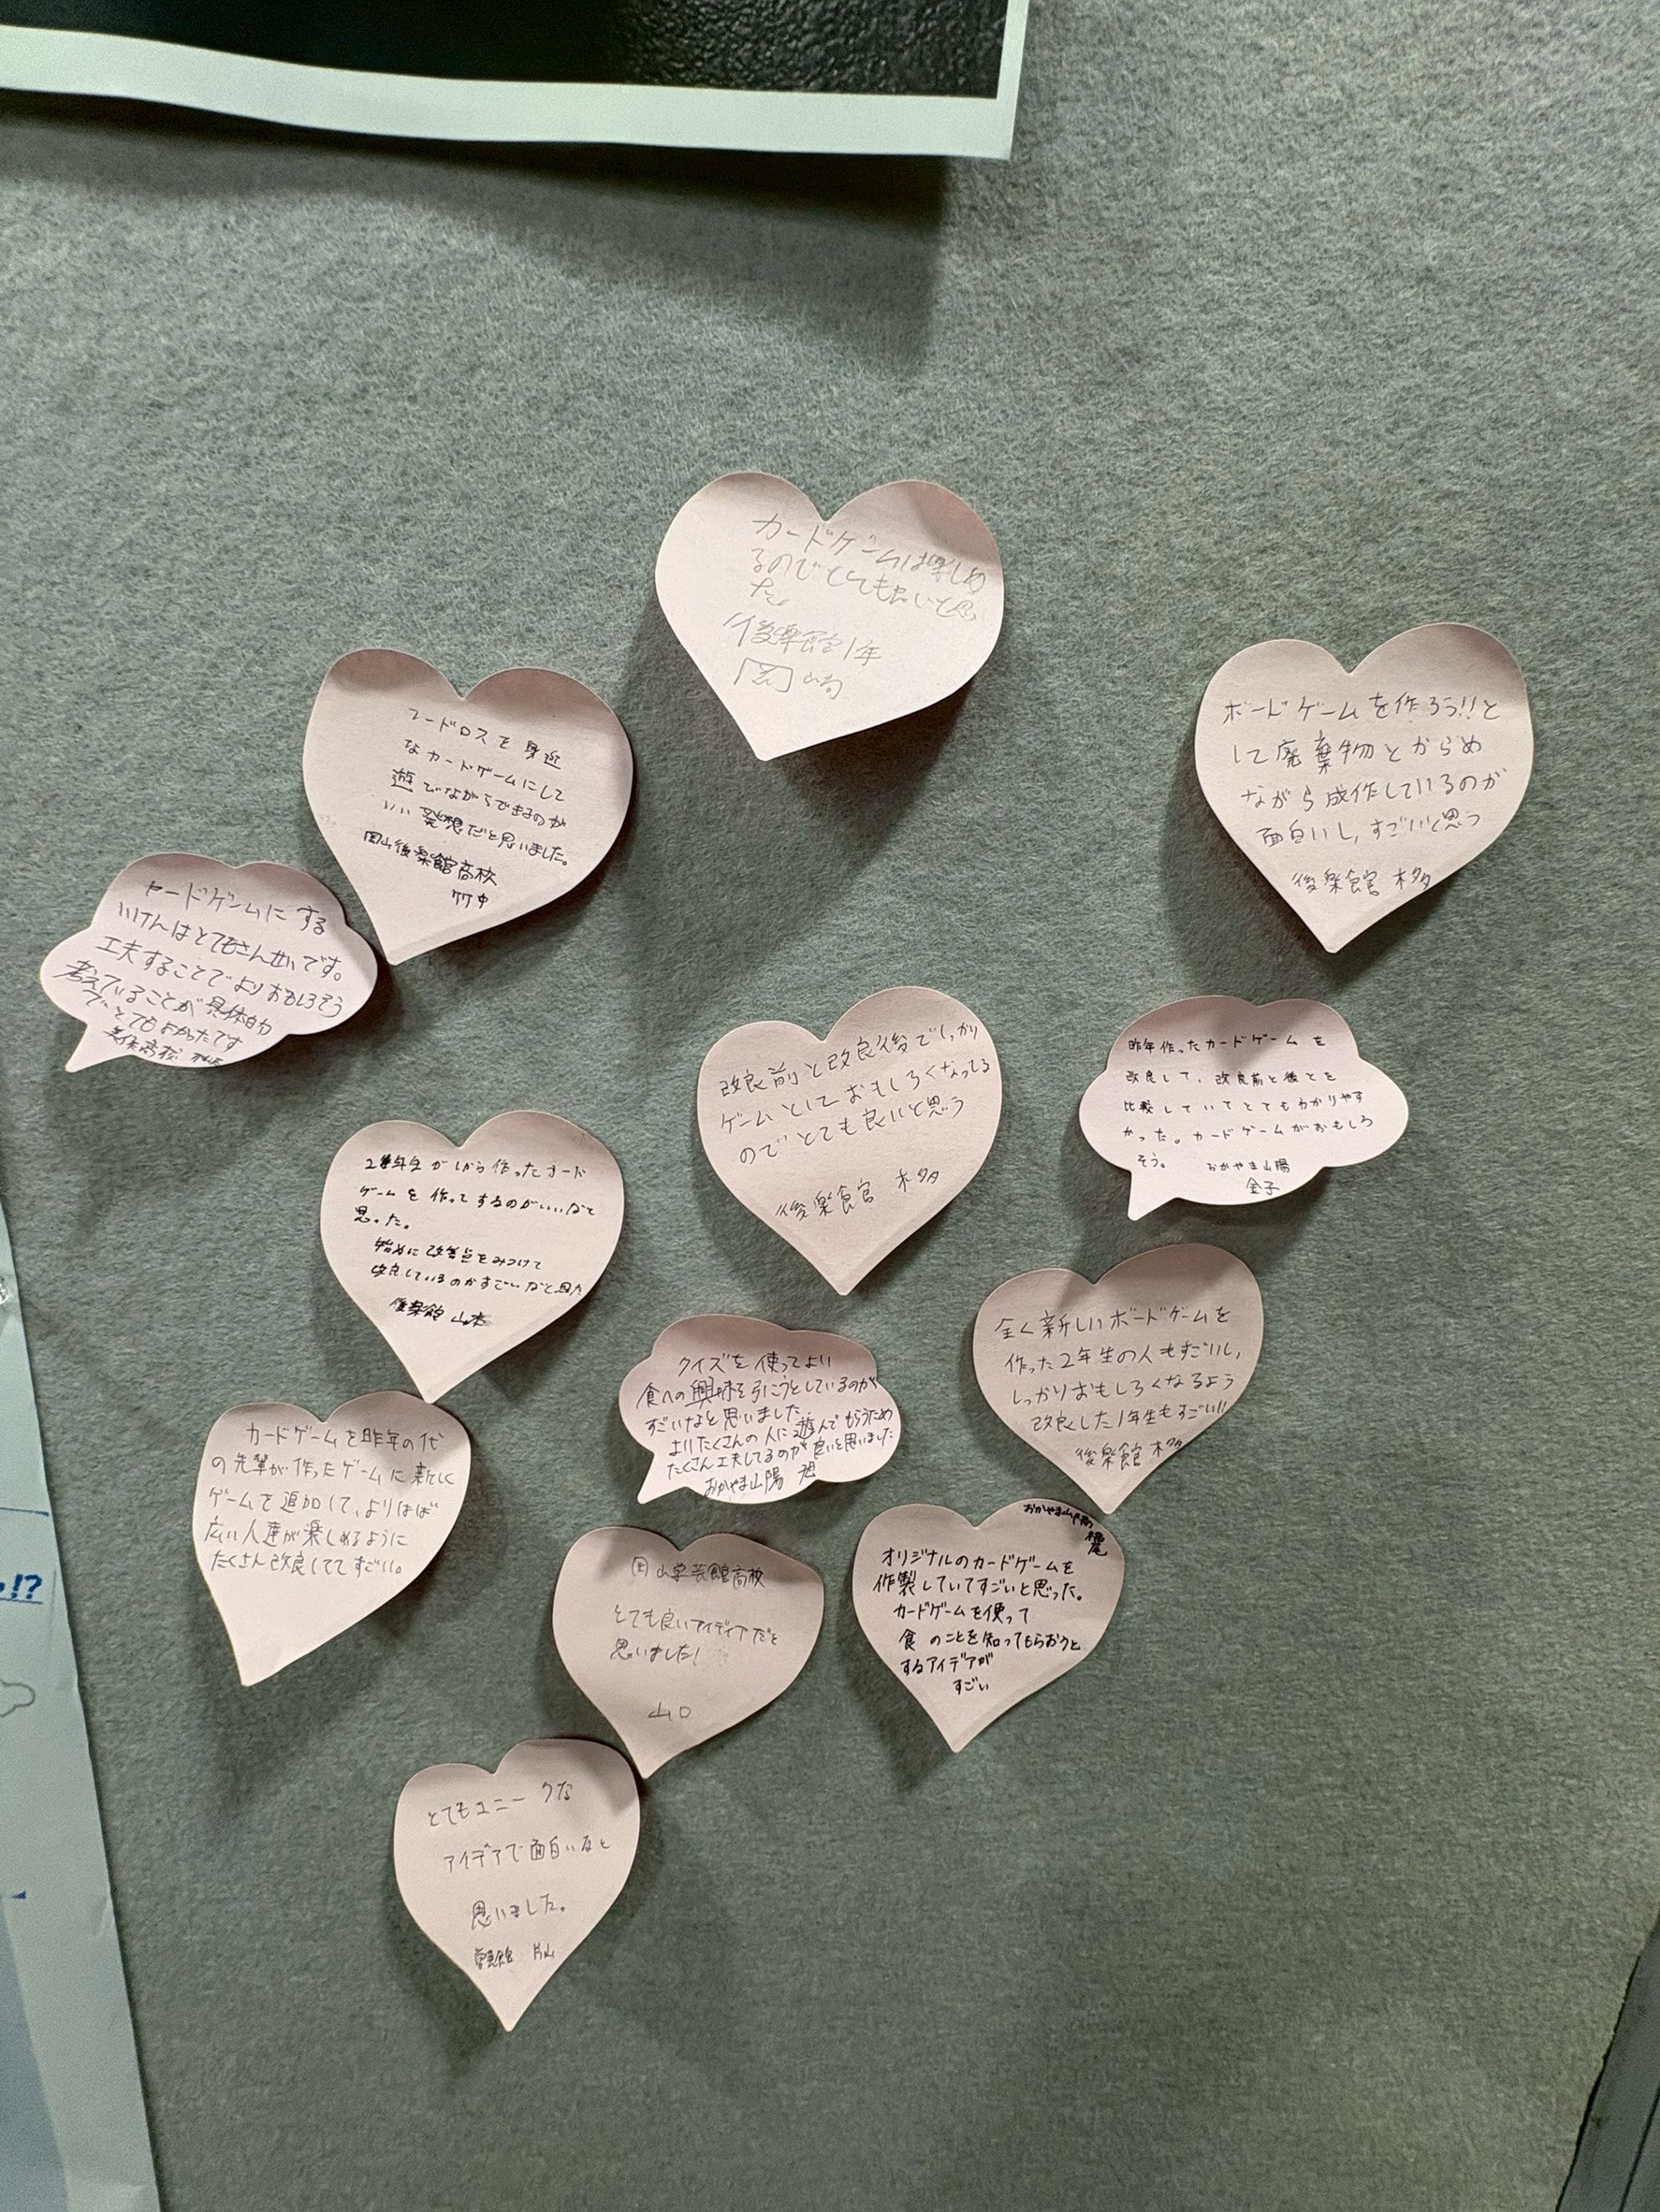 カードゲームは楽しめ
るのでとても
た。
後楽館1年
岡崎
フードロスを身近
なカードゲームにして
遊びながらできるのが
いい発想だと思いました。
岡山後楽館高校
竹中
ボードゲームを作ろう!!と
して廃棄物とからめ
ながら成作しているのが
面白いし,すごいと思う
後楽館 本多
カードゲームにする
いけんはとてもさんせいです。
工夫することでよりおもしろそう
考えていることが具体的
でとてもよかったです
高校
改良前と改良後でしっかり
ゲームとしておもしろくなってる
のでとても良いと思う
後楽館 本多
昨年作ったカードゲームを
改良して、改良前と後とを
比較していてとてもわかりやす
かった。カードゲームがおもしろ
そう。 おかやま山陽
金子
2年生が作ったカード
ゲームを作ってするのがいいなと
思った。
始めに改善点をみつけて
改良しているのがすごいなと思た
後楽館 山本
全く新しいボードゲームを
作った2年生の人もすごいし,
しっかりおもしろくなるよう
改良した1年生もすごい!!
後楽館 本多
クイズを使ってよい
食への興味を引こうとしているのが
すごいなと思いました。
よりたくさんの人に遊んでもらうため
たくさん工夫してるのが良いと思いました
おかやま山陽
カードゲームを昨年の代
の先輩が作ったゲームに新しく
ゲームを追加して、よりはば
広い人達が楽しめるように
たくさん改良しててすごい。
おかやま山陽
オリジナルのカードゲームを
作製していてすごいと思った。
カードゲームを使って
食のことを知ってもらおうと
するアイデアが
すごい
岡山学芸館高校
とても良いアイディアだと
思いました!
山口
とてもユニークな
アイデアで面白いなと
思いました。
学芸館 片山
!?